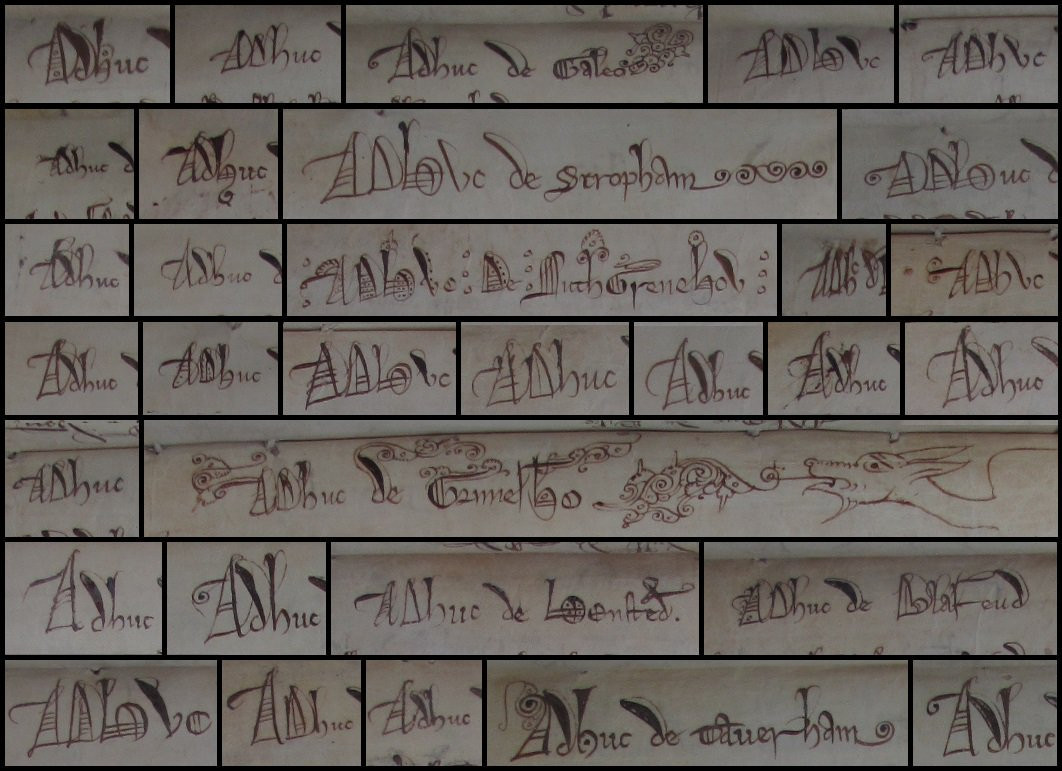 Adhuc Adhuc Adhuc de Galeo Adhuc Adhuc
Adhuc d Adhuc Adhuc de Stropham Adhuc d
Adhuc Adhuc Adhuc De Adhuc Adhuc
Adhuc Adhuc Adhuc Adhuc Adhuc Adhuc Adhuc
Adhuc Adhuc de
Adhuc Adhuc Adhuc de Adhuc de
Adhuc Adhuc Adhuc Adhuc de Tauerham Adhuc